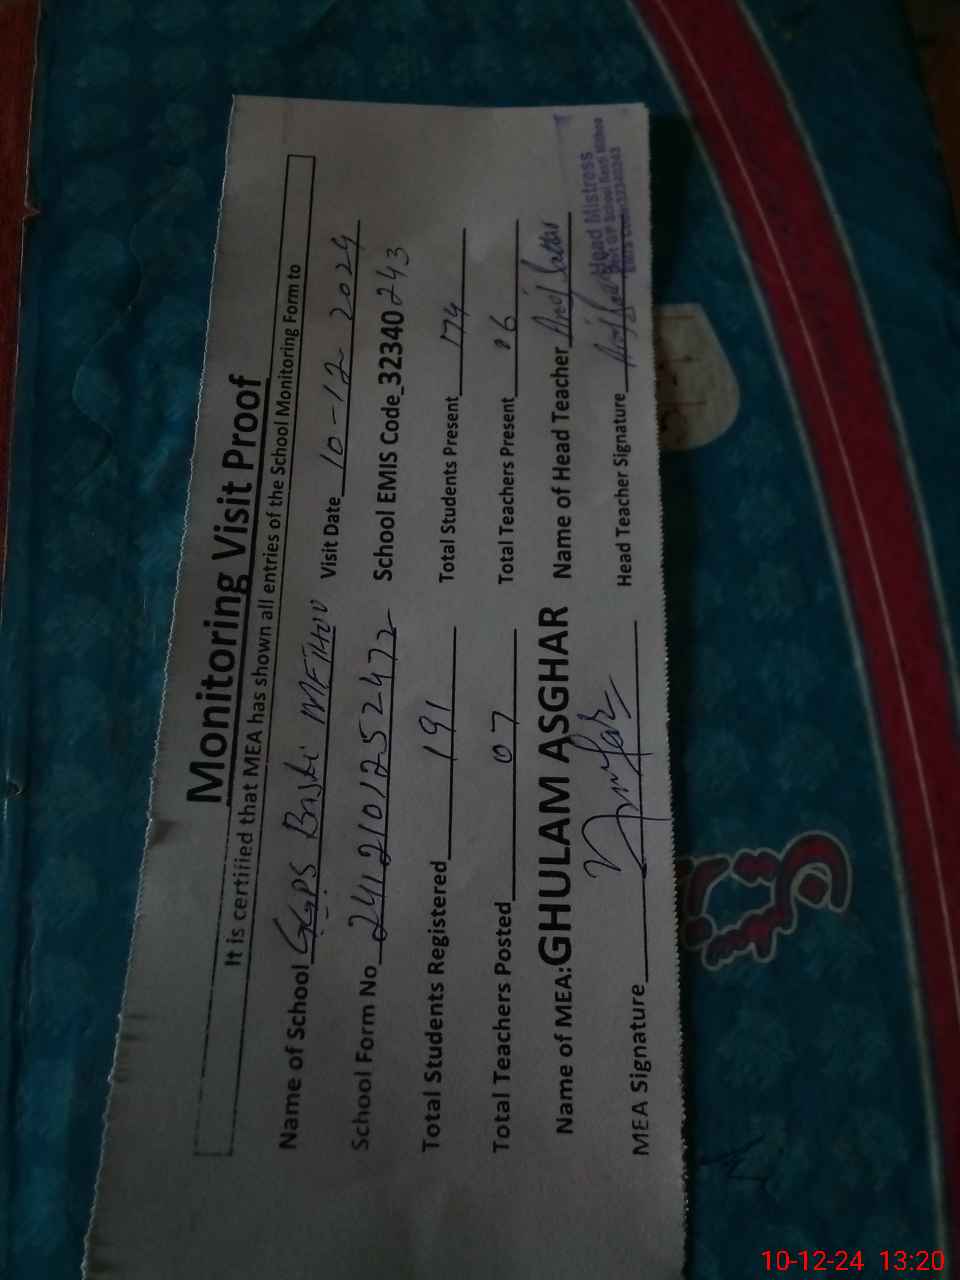 Monitoring Visit Proof
It is certified that MEA has shown all entries of the School Monitoring Form to
Name of School GGPS Basti METHOO Visit Date 10-12-2024
School Form No 2412101252472 School EMIS Code_32340243
Total Students Registered 191 Total Students Present 174
Total Teachers Posted 07 Total Teachers Present 06
Name of MEA:GHULAM ASGHAR Name of Head Teacher Sattar
MEA Signature Head Teacher Signature
Head Mistress
School Basti
EMIS Code:32340243
10-12-24 13:20